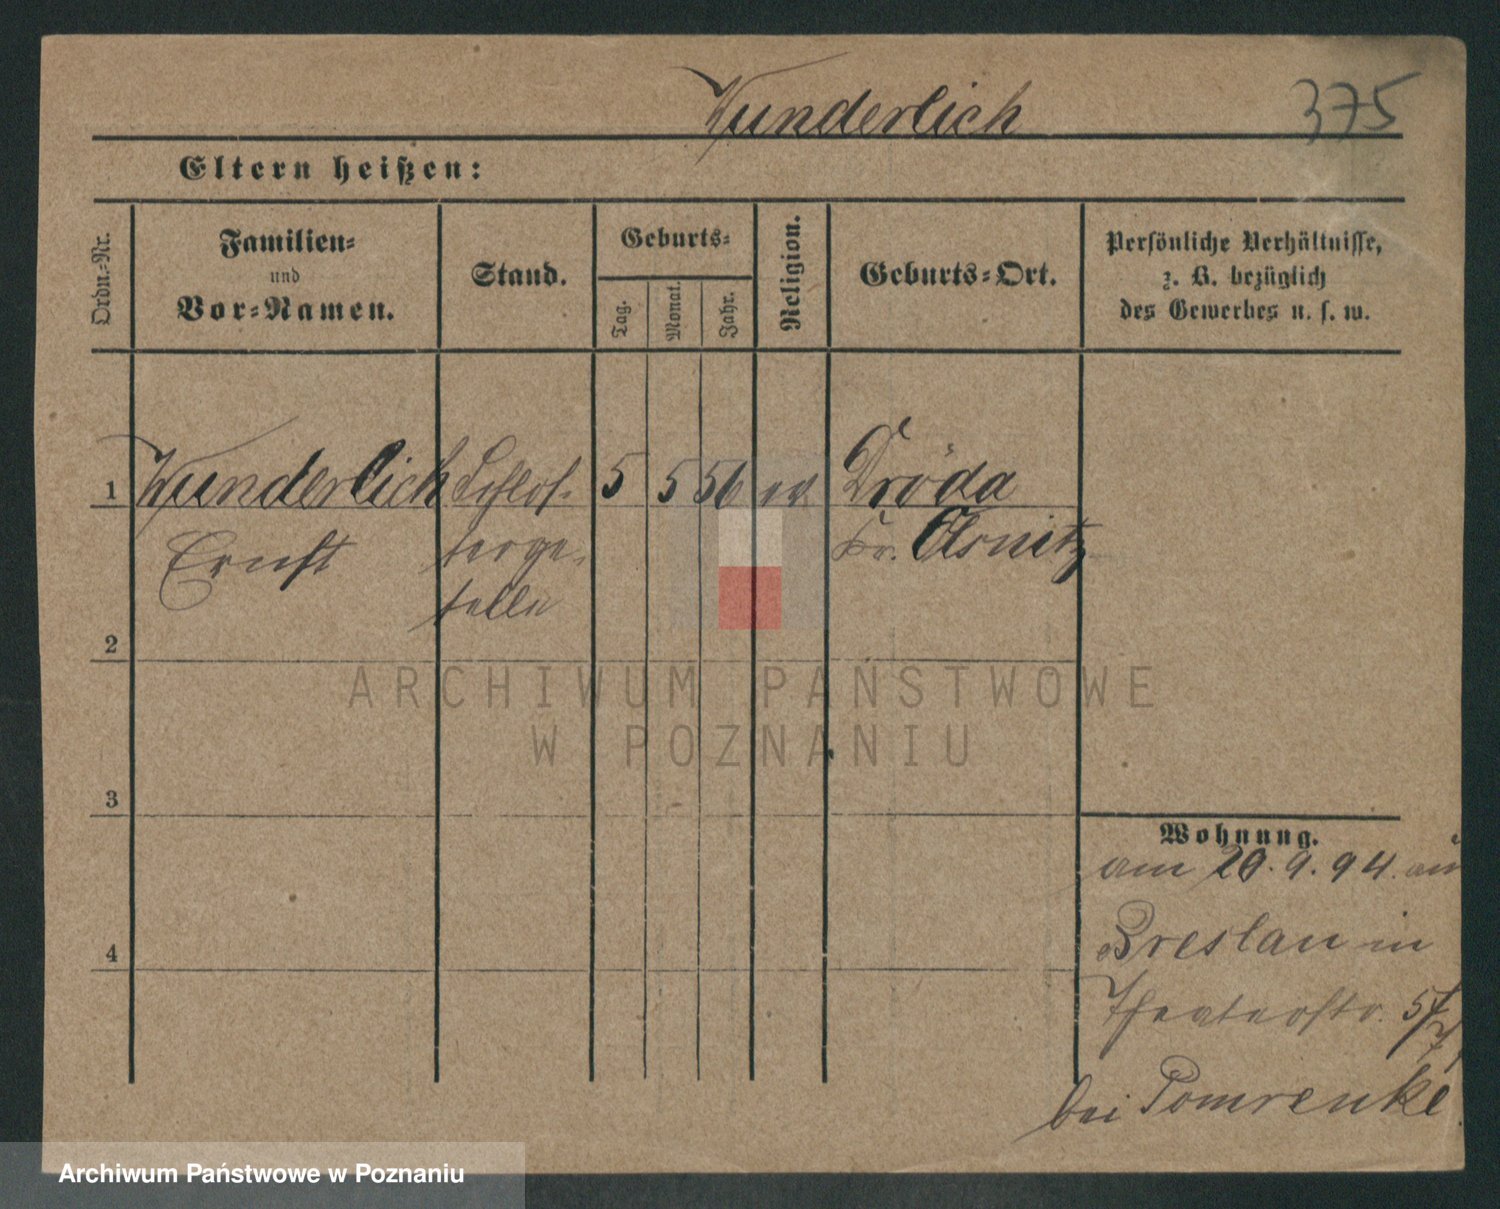 Wunderlich 375
Eltern heißen:
Ordn.-Nr.
Familien-
und
Vor-Namen.
Stand.
Geburts-
Tag.
Monat.
Jahr.
Religion.
Geburts-Ort.
Persönliche Verhältnisse,
z. B. bezüglich
des Gewerbes u. s. w.
1 Wunderlich Schlos- 5 5 56 ev. Dröda
Ernst serge- Kr. Ölsnitz
selle
2
3
4
Wohnung.
am 20. 9. 94. aus
Breslau in
Theaterstr. 5
bei Pomrenke
ARCHIWUM PAŃSTWOWE
W POZNANIU
Archiwum Państwowe w Poznaniu